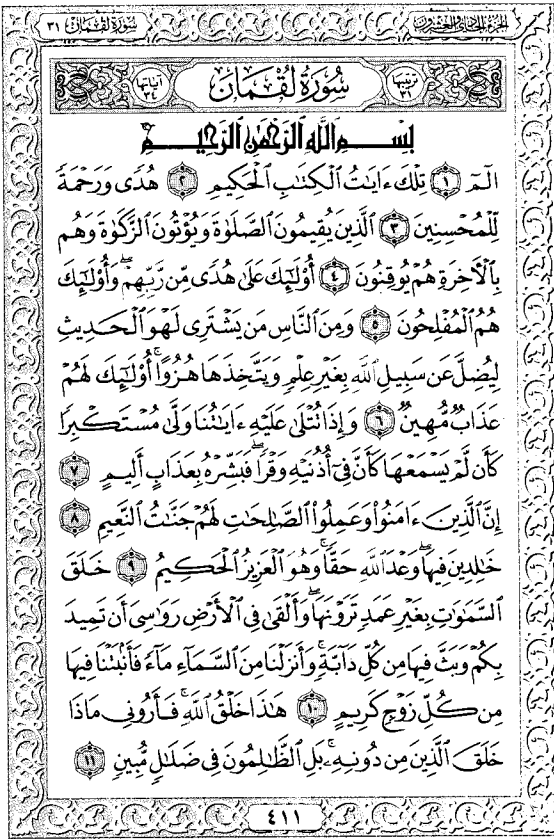 سُورَةُ لُقْمَانَ ٣١
الجُزْءُ الحَادِي وَالعِشْرُونَ
ترتيبها ٣١
سُورَةُ لُقْمَانَ
آياتها ٣٤
بِسْمِ ٱللَّهِ ٱلرَّحْمَٰنِ ٱلرَّحِيمِ
الٓمٓ ١ تِلْكَ ءَايَٰتُ ٱلْكِتَٰبِ ٱلْحَكِيمِ ٢ هُدًى وَرَحْمَةً
لِّلْمُحْسِنِينَ ٣ ٱلَّذِينَ يُقِيمُونَ ٱلصَّلَوٰةَ وَيُؤْتُونَ ٱلزَّكَوٰةَ وَهُم
بِٱلْءَاخِرَةِ هُمْ يُوقِنُونَ ٤ أُوْلَٰٓئِكَ عَلَىٰ هُدًى مِّن رَّبِّهِمْ ۖ وَأُوْلَٰٓئِكَ
هُمُ ٱلْمُفْلِحُونَ ٥ وَمِنَ ٱلنَّاسِ مَن يَشْتَرِى لَهْوَ ٱلْحَدِيثِ
لِيُضِلَّ عَن سَبِيلِ ٱللَّهِ بِغَيْرِ عِلْمٍ وَيَتَّخِذَهَا هُزُوًا ۚ أُوْلَٰٓئِكَ لَهُمْ
عَذَابٌ مُّهِينٌ ٦ وَإِذَا تُتْلَىٰ عَلَيْهِ ءَايَٰتُنَا وَلَّىٰ مُسْتَكْبِرًا
كَأَن لَّمْ يَسْمَعْهَا كَأَنَّ فِىٓ أُذُنَيْهِ وَقْرًا ۖ فَبَشِّرْهُ بِعَذَابٍ أَلِيمٍ ٧
إِنَّ ٱلَّذِينَ ءَامَنُوا۟ وَعَمِلُوا۟ ٱلصَّٰلِحَٰتِ لَهُمْ جَنَّٰتُ ٱلنَّعِيمِ ٨
خَٰلِدِينَ فِيهَا ۖ وَعْدَ ٱللَّهِ حَقًّا ۚ وَهُوَ ٱلْعَزِيزُ ٱلْحَكِيمُ ٩ خَلَقَ
ٱلسَّمَٰوَٰتِ بِغَيْرِ عَمَدٍ تَرَوْنَهَا ۖ وَأَلْقَىٰ فِى ٱلْأَرْضِ رَوَٰسِىَ أَن تَمِيدَ
بِكُمْ وَبَثَّ فِيهَا مِن كُلِّ دَآبَّةٍ ۚ وَأَنزَلْنَا مِنَ ٱلسَّمَآءِ مَآءً فَأَنۢبَتْنَا فِيهَا
مِن كُلِّ زَوْجٍ كَرِيمٍ ١٠ هَٰذَا خَلْقُ ٱللَّهِ فَأَرُونِى مَاذَا
خَلَقَ ٱلَّذِينَ مِن دُونِهِۦ ۚ بَلِ ٱلظَّٰلِمُونَ فِى ضَلَٰلٍ مُّبِينٍ ١١
٤١١